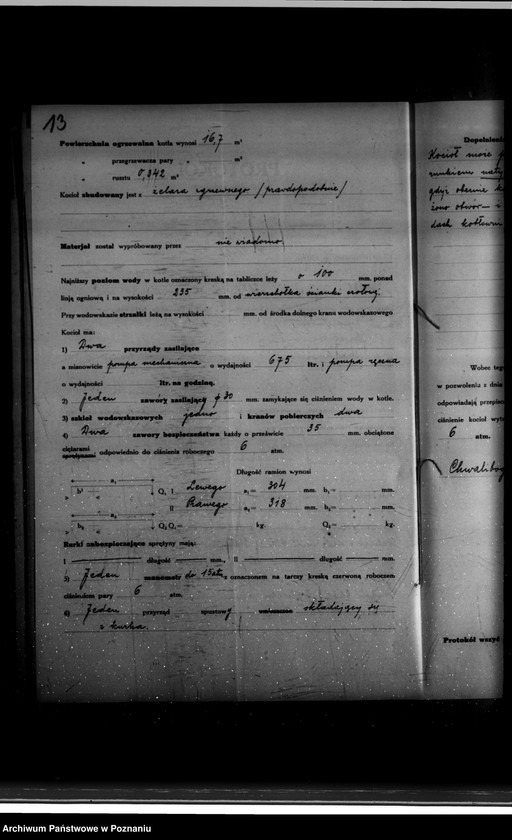 13
Powierzchnia ogrzewalna kotła wynosi 16,7 m²
„ przegrzewacza pary „ m²
„ rusztu 0,342 m²
Kocioł zbudowany jest z żelaza zgrzewnego /prawdopodobnie/
Materjał został wypróbowany przez nie wiadomo
Najniższy poziom wody w kotle oznaczony kreską na tabliczce leży o 100 mm. ponad
linją ogniową i na wysokości 235 mm. od wierzchołka ścianki
Przy wodowskazie strzałki leżą na wysokości mm. od środka dolnego kranu wodowskazowego
Kocioł ma:
1) Dwa przyrządy zasilające
a mianowicie pompa mechaniczna o wydajności 675 ltr. i pompa ręczna
o wydajności ltr. na godzinę.
2) jeden zawóry zasilający φ 30 mm. zamykające się ciśnieniem wody w kotle.
3) szkieł wodowskazowych jedno i kranów pobierczych dwa
4) Dwa zawory bezpieczeństwa każdy o prześwicie 35 mm. obciążone
ciężarami
sprężynami odpowiednio do ciśnienia roboczego 6 atm.
Długość ramion wynosi
a₁
b¹ Q₁ I Lewego a₁= 304 mm. b₁= mm.
II Prawego a₂= 318 mm. b₂= mm.
a₂
b₂ Q₂ Q₁= kg. Q₂= kg.
Rurki zabezpieczające sprężyny mają:
I długość mm. II długość mm.
5) Jeden manometr do 15 atm z oznaczonem na tarczy kreską czerwoną roboczem
ciśnieniem pary 6 atm.
6) Jeden przyrząd spustowy składający się
z kurka.
Dopełnieni
Kocioł może
gdyż obecnie
żono otwór
dach
Wobec teg
w pozwoleniu z dnia
odpowiadają przepiso
ciśnienie kocioł wyt
6 atm.
Chwalibog
Protokół wszyć
Archiwum Państwowe w Poznaniu